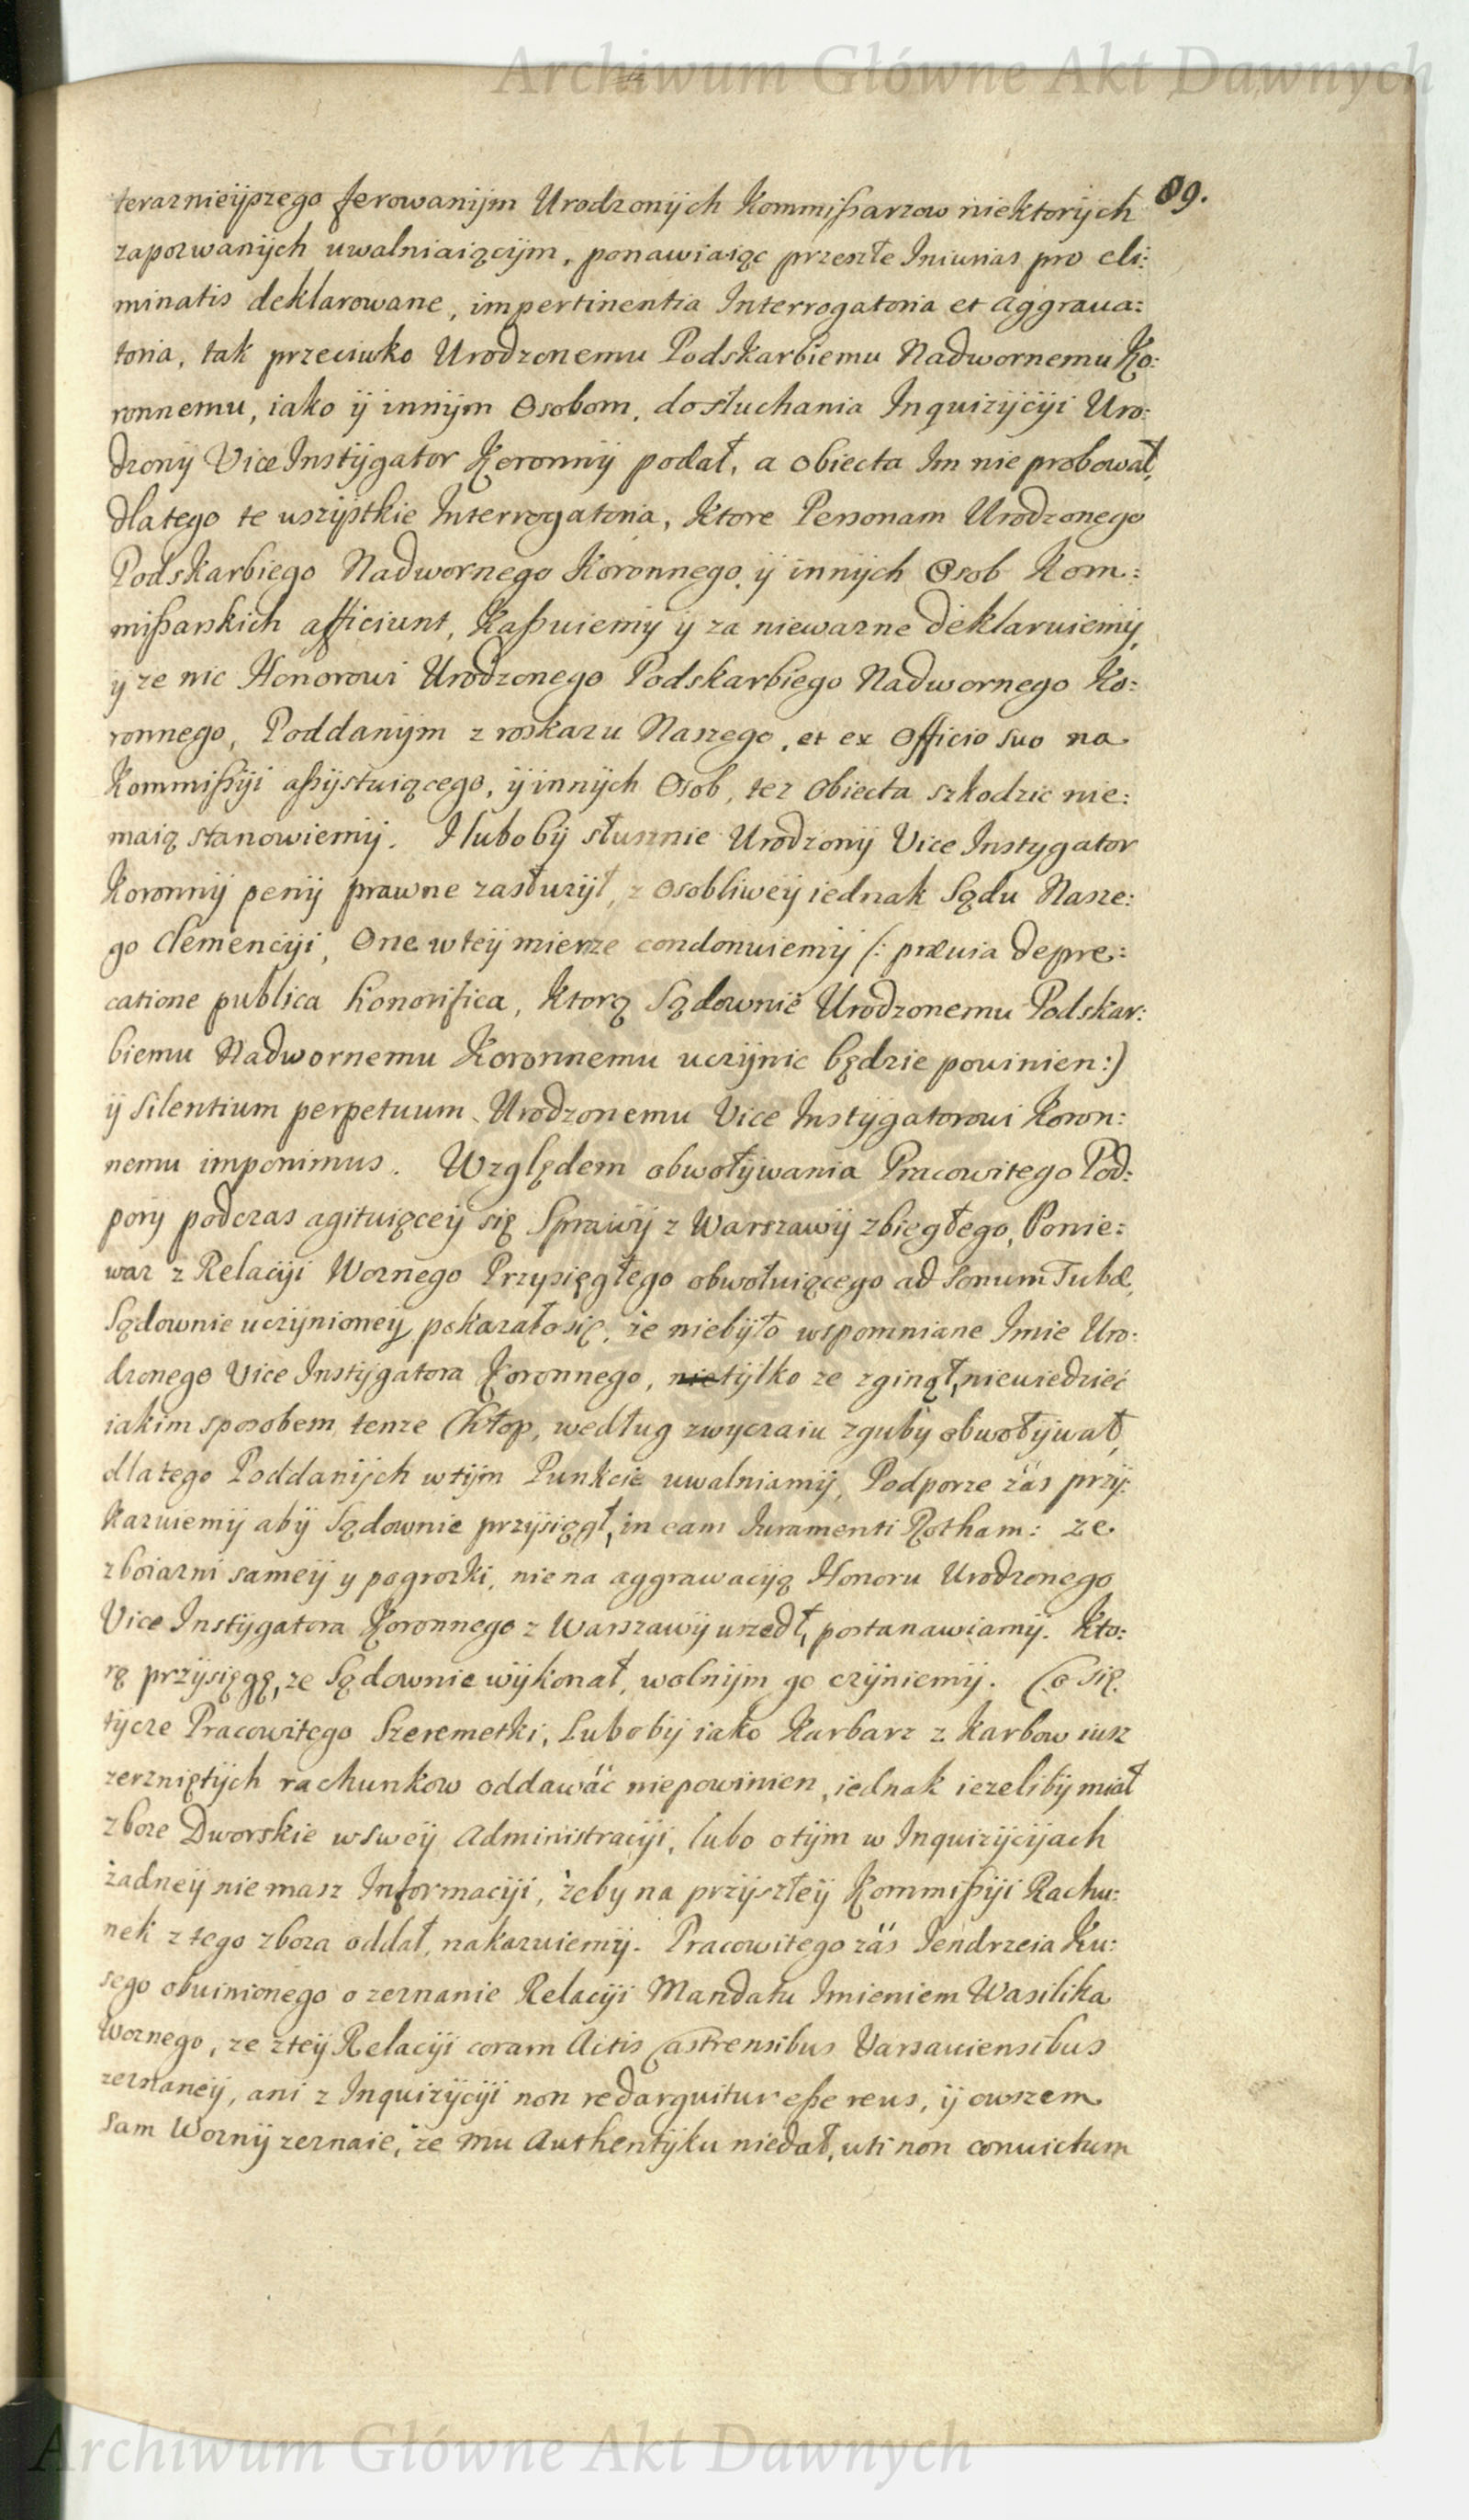 Archiwum Główne Akt Dawnych
89.
teraznieÿszego ferowanÿm Urodzonÿch Kommißarzow niektorÿch
zapozwanÿch uwalniaiącÿm, ponawiaiąc przeszłe Iniurias pro eli:
minatis deklarowane, impertinentia Interrogatoria et aggraua:
toria, tak przeciwko Urodzonemu Podskarbiemu Nadwornemu Ko:
ronnemu, iako ÿ innÿm Osobom, do słuchania Inquizÿcÿi Uro:
dzonÿ Vice Instÿgator Koronnÿ podał, a obiecta Im nie probował,
dlatego te wszÿstkie Interrogatoria, ktore Personam Urodzonego
Podskarbiego Nadwornego Koronnego ÿ innÿch Osob Kom:
mißarskich afficiunt, kaßuiemÿ ÿ za niewazne deklaruiemÿ,
ÿ ze nic Honorowi Urodzonego Podskarbiego Nadwornego Ko:
ronnego, Poddanÿm z roskazu Naszego, et ex Officio suo na
Kommißÿi aßÿstuiącego, ÿ innÿch Osob, tez obiecta szkodzic nie:
maią stanowiemÿ. I lubobÿ słusznie Urodzonÿ Vice Instygator
Koronnÿ penÿ prawne zasłuzÿł, z osobliweÿ iednak Sądu Nasze:
go Clemencÿi, One w teÿ mierze condonuiemÿ /: præuia depre:
catione publica honorifica, ktorą Sądownie Urodzonemu Podskar:
biemu Nadwornemu Koronnemu uczÿnic będzie powinien :)
ÿ Silentium perpetuum Urodzonemu Vice Instÿgatorowi Koron:
nemu imponimus. Względem obwołÿwania Pracowitego Pod:
porÿ podczas agituiąceÿ się Sprawÿ z Warszawÿ zbiegłego, Ponie:
waz z Relacÿi Woznego Przysięgłego obwołuiącego ad Sonum Tubæ,
Sądownie uczÿnioneÿ pokazało się, ze niebÿło wspomniane Imie Uro:
dzonego Vice Instÿgatora Koronnego, nietÿlko ze zginął, niewiedziec
iakim sposobem tenze Chłop, według zwyczaiu zgubÿ obwołÿwał,
dlatego Poddanÿch w tÿm Punkcie uwalniamÿ, Podporze zas przÿ:
kazuiemÿ abÿ Sądownie przÿsiągł, in eam Iuramenti Rotham: ze
z boiazni sameÿ y pogrozki, nie na aggrawacÿą Honoru Urodzonego
Vice Instÿgatora Koronnego z Warszawÿ uszedł, postanawiamÿ. Kto:
rą przÿsięgę, ze Sądownie wÿkonał, wolnÿm go czÿniemÿ. Co się
tÿcze Pracowitego Szeremetki, Lubobÿ iako Karbarz z Karbow iusz
zerzniętÿch rachunkow oddawac niepowinien, iednak iezelibÿ miał
zboze Dworskie w sweÿ Administracÿi, lubo o tÿm w Inquizÿcÿach
żadneÿ nie masz Informacÿi, żeby na przÿszłeÿ Kommißÿi Rachu:
nek z tego zboza oddał, nakazuiemÿ. Pracowitego zas Jendrzeia Ku:
sego obwinionego o zeznanie Relacÿi Mandatu Imieniem Wasilika
Woznego, ze z teÿ Relacÿi coram Actis Castrensibus Varsauiensibus
zeznaneÿ, ani z Inquizÿcÿi non redarguitur eße reus, ÿ owszem
sam Woznÿ zeznaie, że mu Authentÿku niedał, uti non conuictum
Archiwum Główne Akt Dawnych